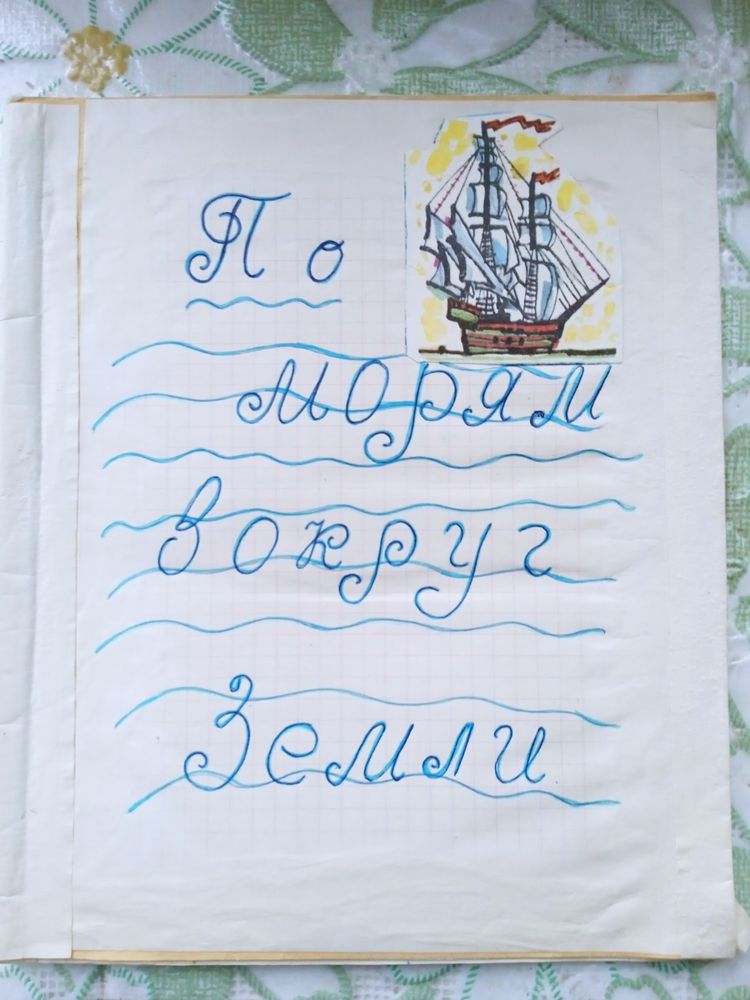 По
морям
вокруг
Земли